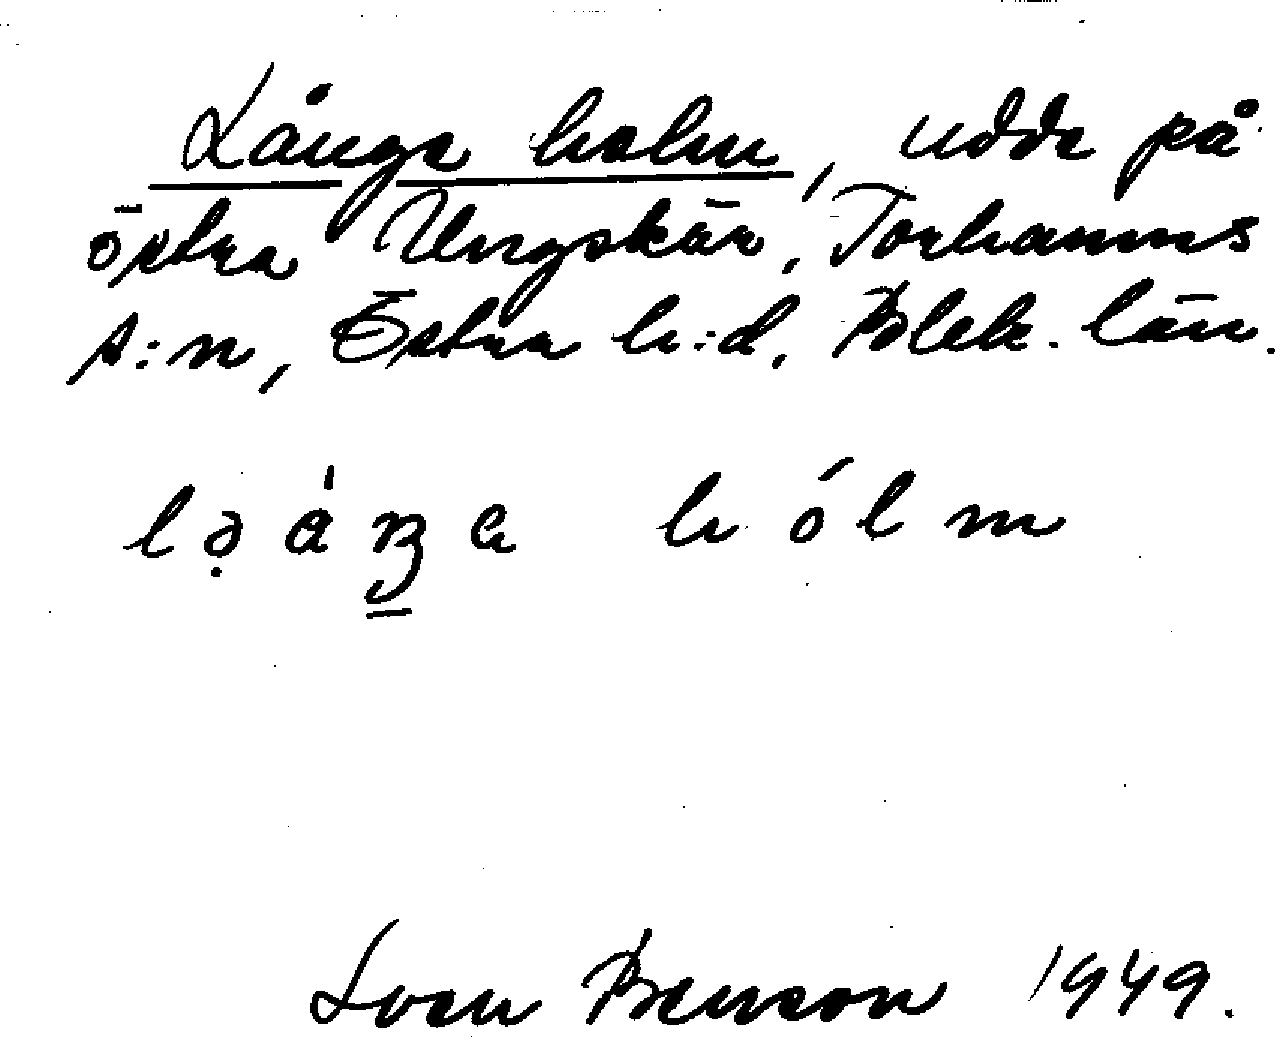 Långe holm, udde på
östra Ungskär, Torhamns
s:n, Östra h:d, Blek. län.
lə̣áŋa hólm
Sven Benson 1949.